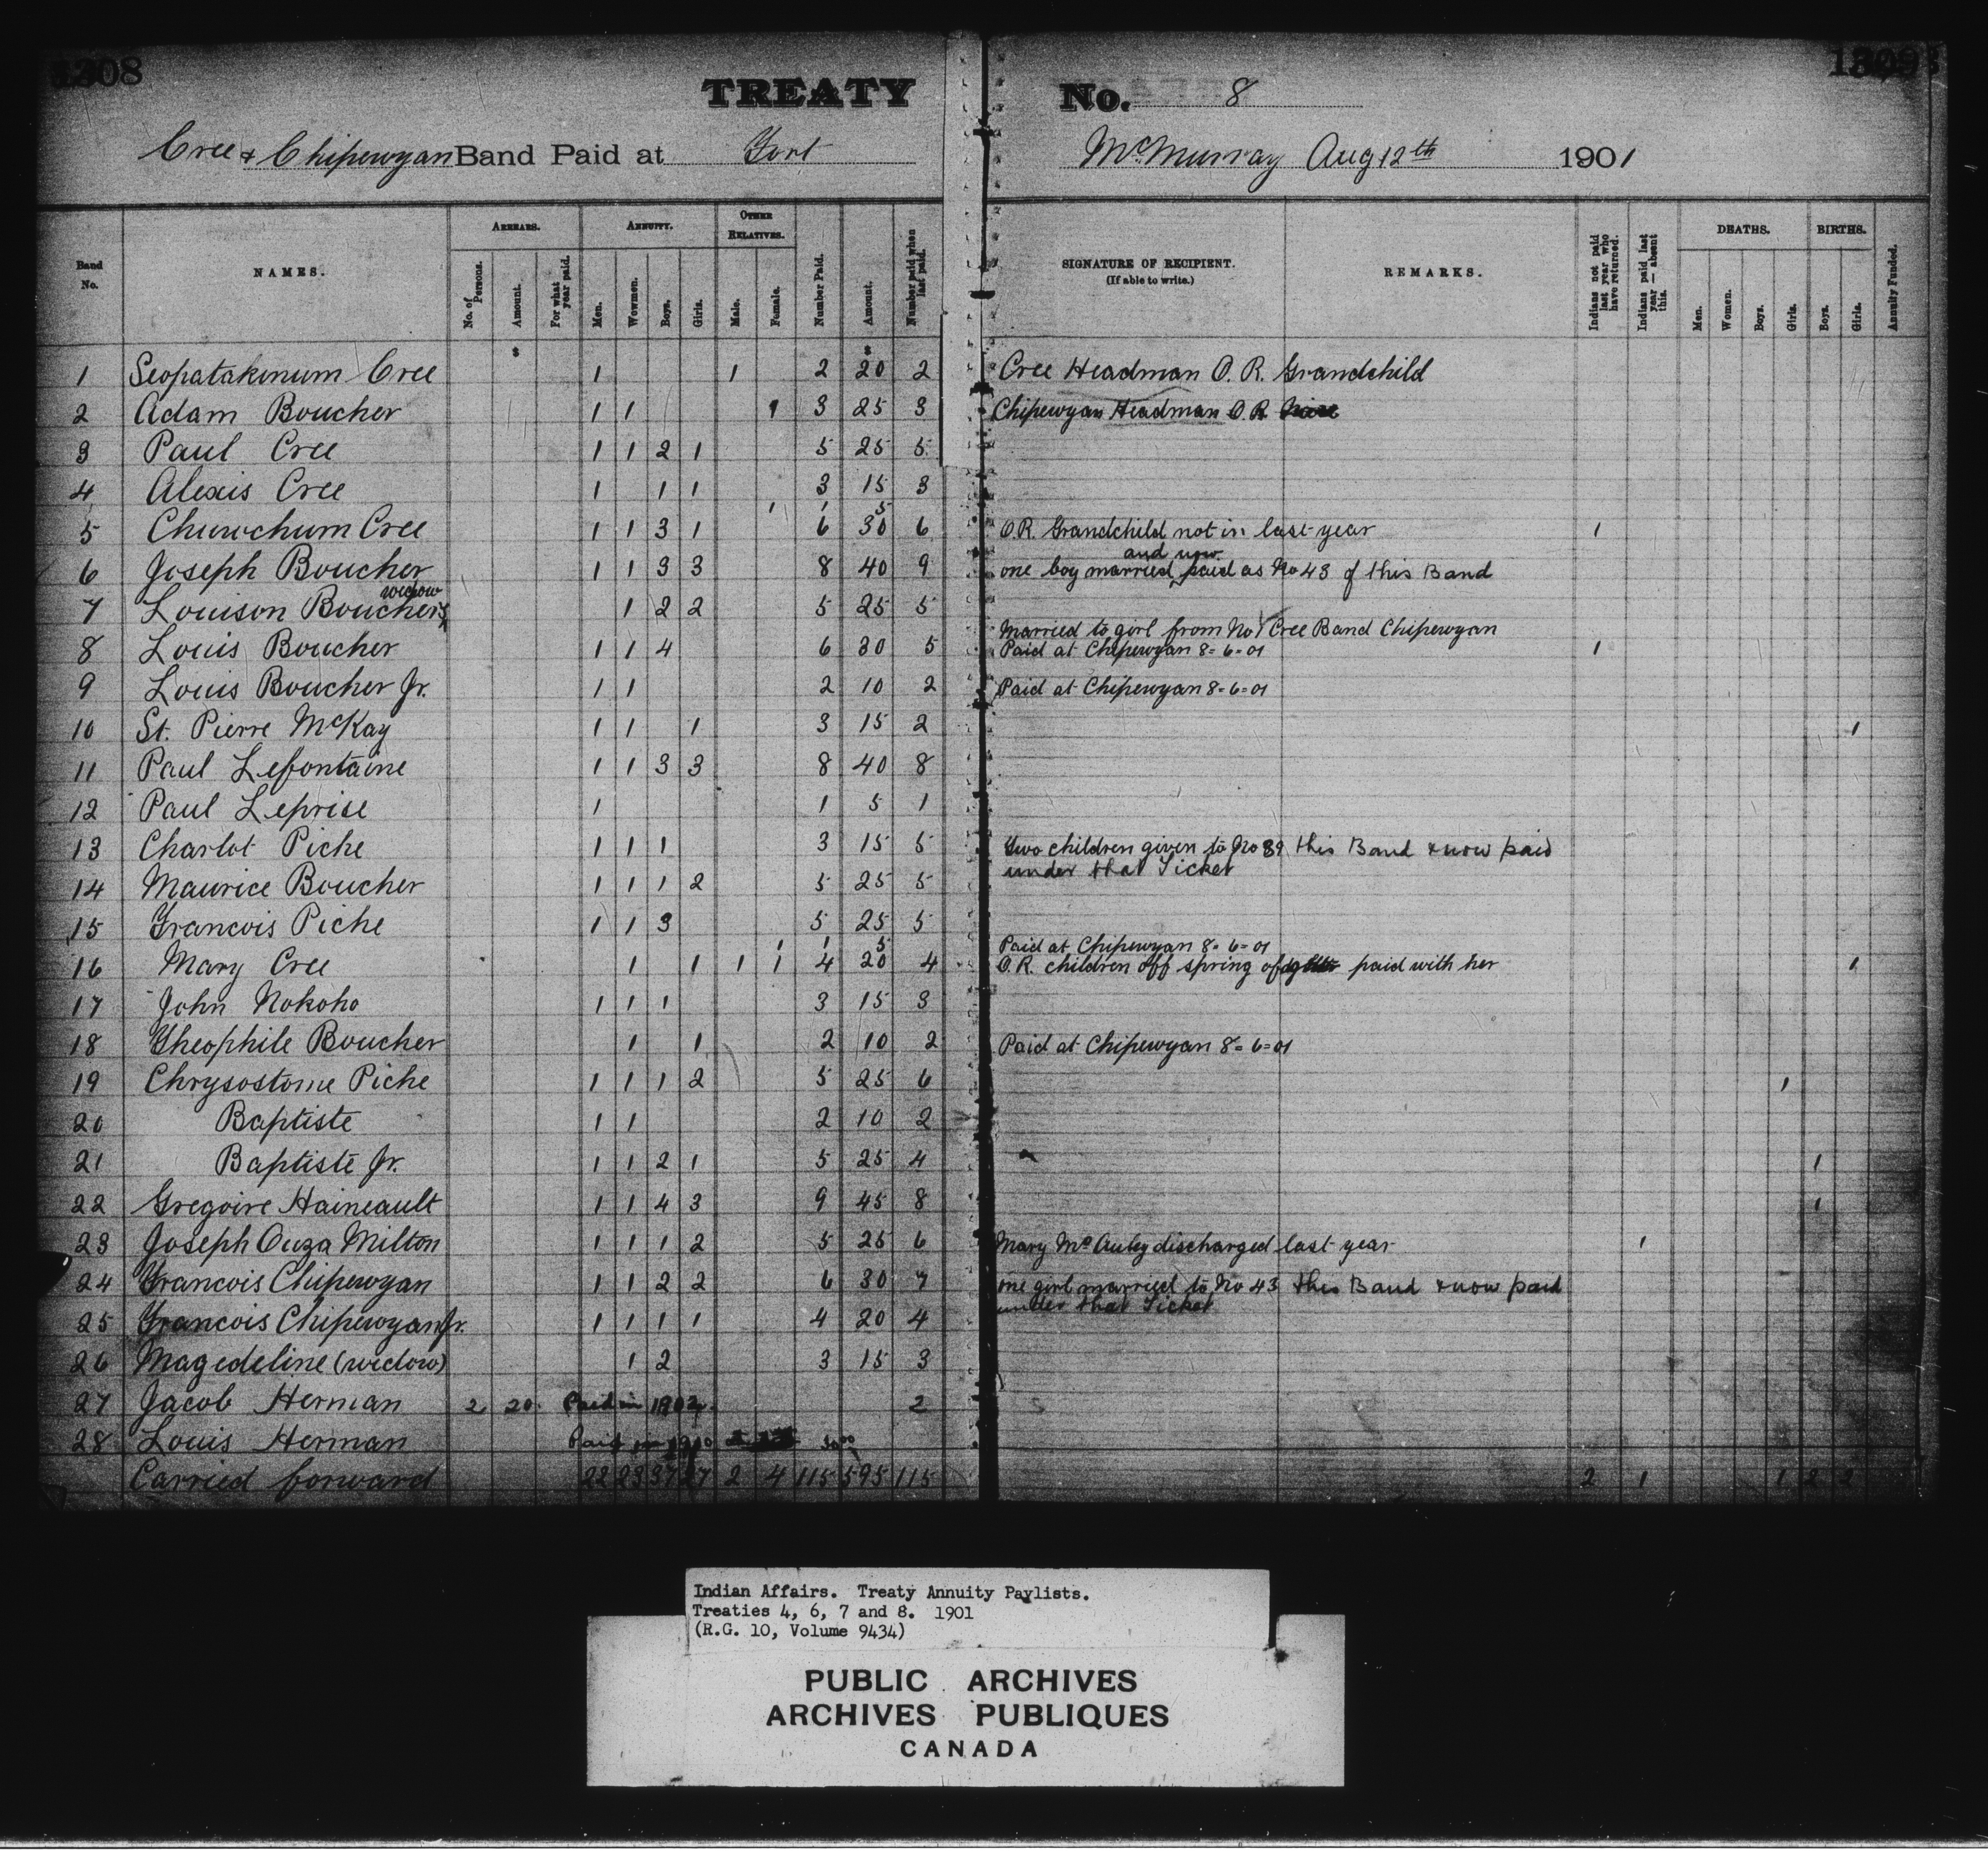 1308
TREATY No. 8
1309
Cree & Chipewyan Band Paid at Fort McMurray Aug 12th 1901
Band No. NAMES. ARREARS. No. of Persons. Amount. For what year paid. ANNUITY. Men. Wowmen. Boys. Girls. OTHER RELATIVES. Male. Female. Number Paid. Amount. Number paid when last paid. SIGNATURE OF RECIPIENT. (If able to write.) REMARKS. Indians not paid last year who have returned. Indians paid last year — absent this. DEATHS. Men. Women. Boys. Girls. BIRTHS. Boys. Girls. Annuity Funded.
$ $
1 Seopatakinum Cree 1 1 2 20 2 Cree Headman O. R. Grandchild
2 Adam Boucher 1 1 1 3 25 3 Chipewyan Headman O. R.
3 Paul Cree 1 1 2 1 5 25 5
4 Alexis Cree 1 1 1 3 15 3
1 1 5
5 Chuwchum Cree 1 1 3 1 6 30 6 O.R. Grandchild not in last year 1
and now
6 Joseph Boucher 1 1 3 3 8 40 9 one boy married paid as No 43 of this Band
widow
7 Louison Boucher's 1 2 2 5 25 5
Married to girl from No 1 Cree Band Chipewyan
8 Louis Boucher 1 1 4 6 30 5 Paid at Chipewyan 8=6=01 1
9 Louis Boucher Jr. 1 1 2 10 2 Paid at Chipewyan 8=6=01
10 St. Pierre McKay 1 1 1 3 15 2 1
11 Paul Lefontaine 1 1 3 3 8 40 8
12 Paul Leprise 1 1 5 1
13 Charlot Piche 1 1 1 3 15 5 Two children given to No 39 this Band & now paid
under that Ticket
14 Maurice Boucher 1 1 1 2 5 25 5
15 Francois Piche 1 1 3 5 25 5
1 1 5 Paid at Chipewyan 8=6=01
16 Mary Cree 1 1 1 1 4 20 4 O.R. children off spring of paid with her 1
17 John Nokoho 1 1 1 3 15 3
18 Theophile Boucher 1 1 2 10 2 Paid at Chipewyan 8=6=01
19 Chrysostome Piche 1 1 1 2 5 25 6 1
20 Baptiste 1 1 2 10 2
21 Baptiste Jr. 1 1 2 1 5 25 4 1
22 Gregoire Haineault 1 1 4 3 9 45 8 1
23 Joseph Ouza Milton 1 1 1 2 5 25 6 Mary McAuley discharged last year 1
24 Francois Chipewyan 1 1 2 2 6 30 7 one girl married to No 43 this Band & now paid
under that Ticket
25 Francois Chipewyan Jr. 1 1 1 1 4 20 4
26 Magedeline (widow) 1 2 3 15 3
27 Jacob Herman 2 20 Paid in 1902 2
28 Louis Herman Paid in 1910
Carried forward 22 23 37 27 2 4 115 595 115 2 1 1 2 2
Indian Affairs. Treaty Annuity Paylists.
Treaties 4, 6, 7 and 8. 1901
(R.G. 10, Volume 9434)
PUBLIC ARCHIVES
ARCHIVES PUBLIQUES
CANADA